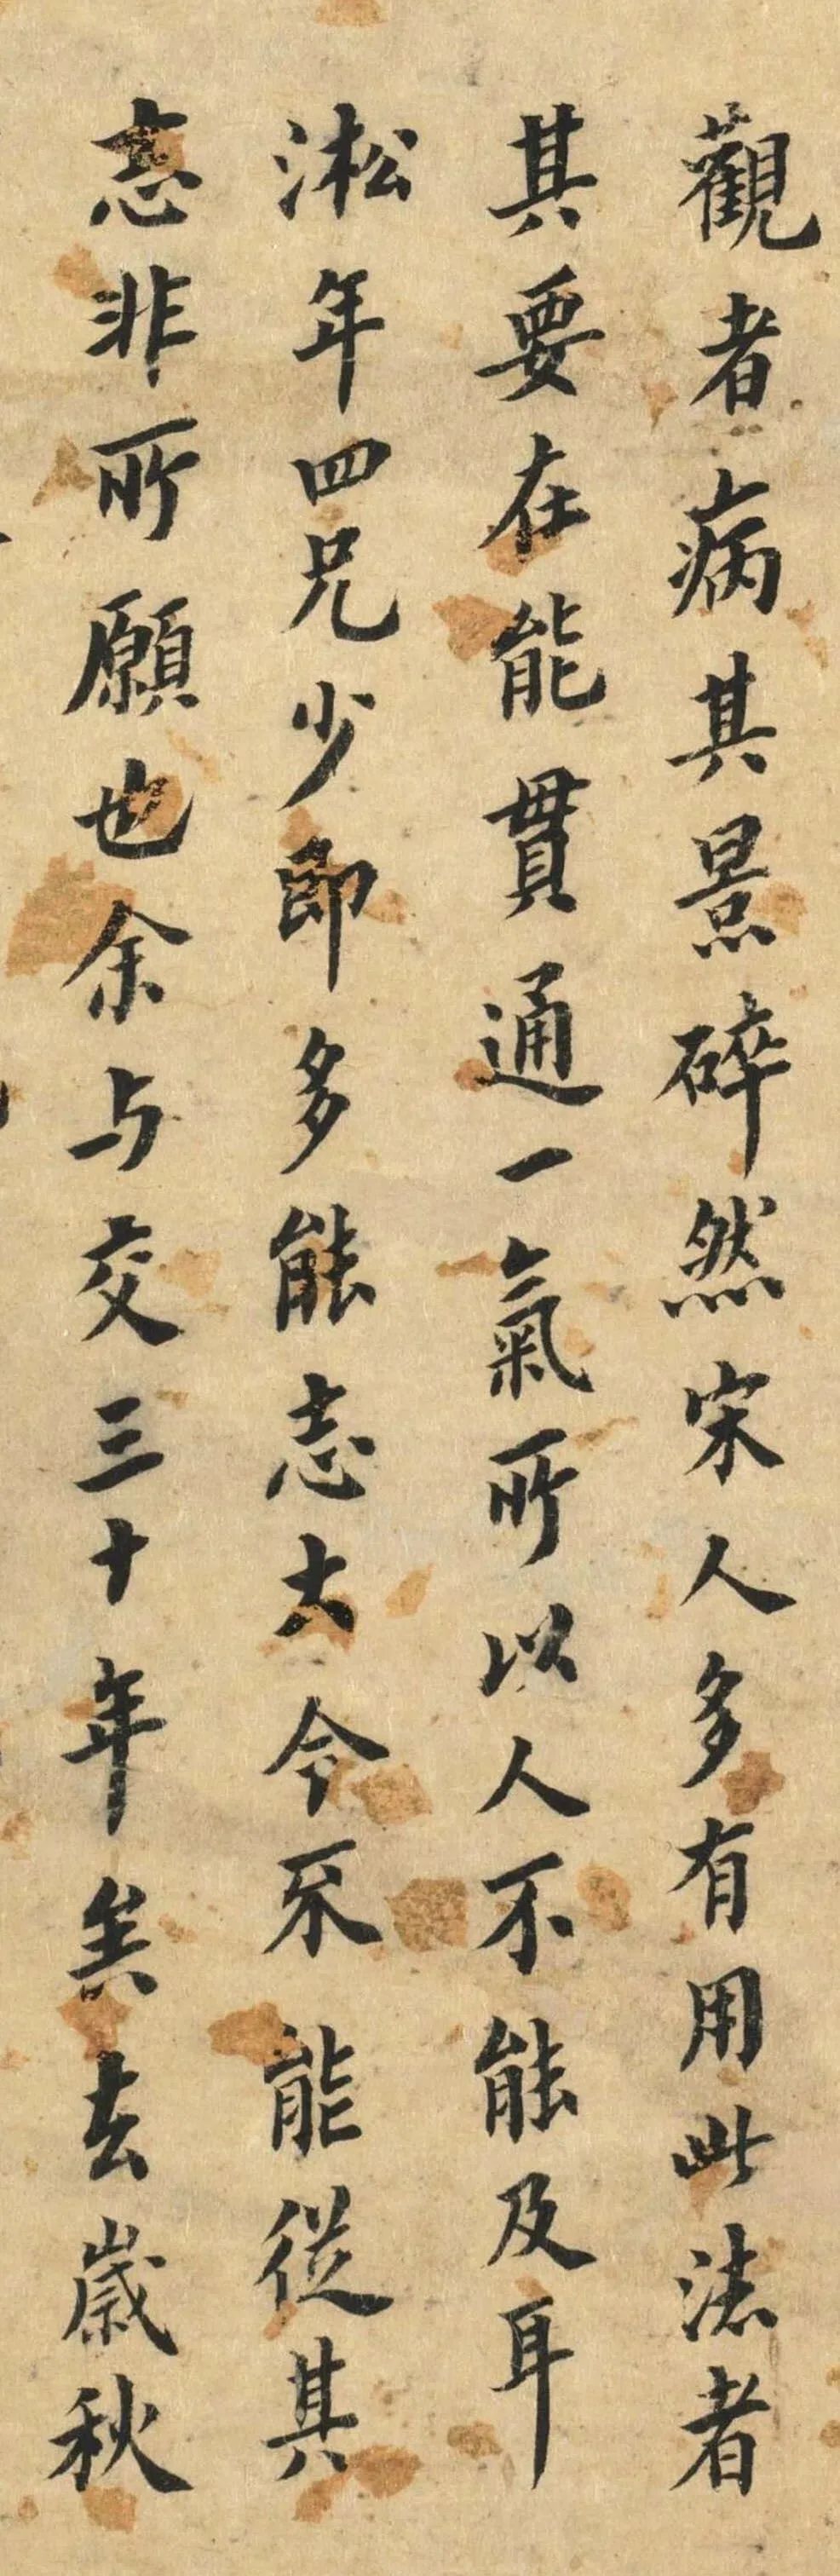 觀者病其景碎然宋人多有用此法者
其要在能貫通一氣所以人不能及耳
淞年四兄少即多能志大今不能從其
志非所願也余与交三十年矣去歲秋